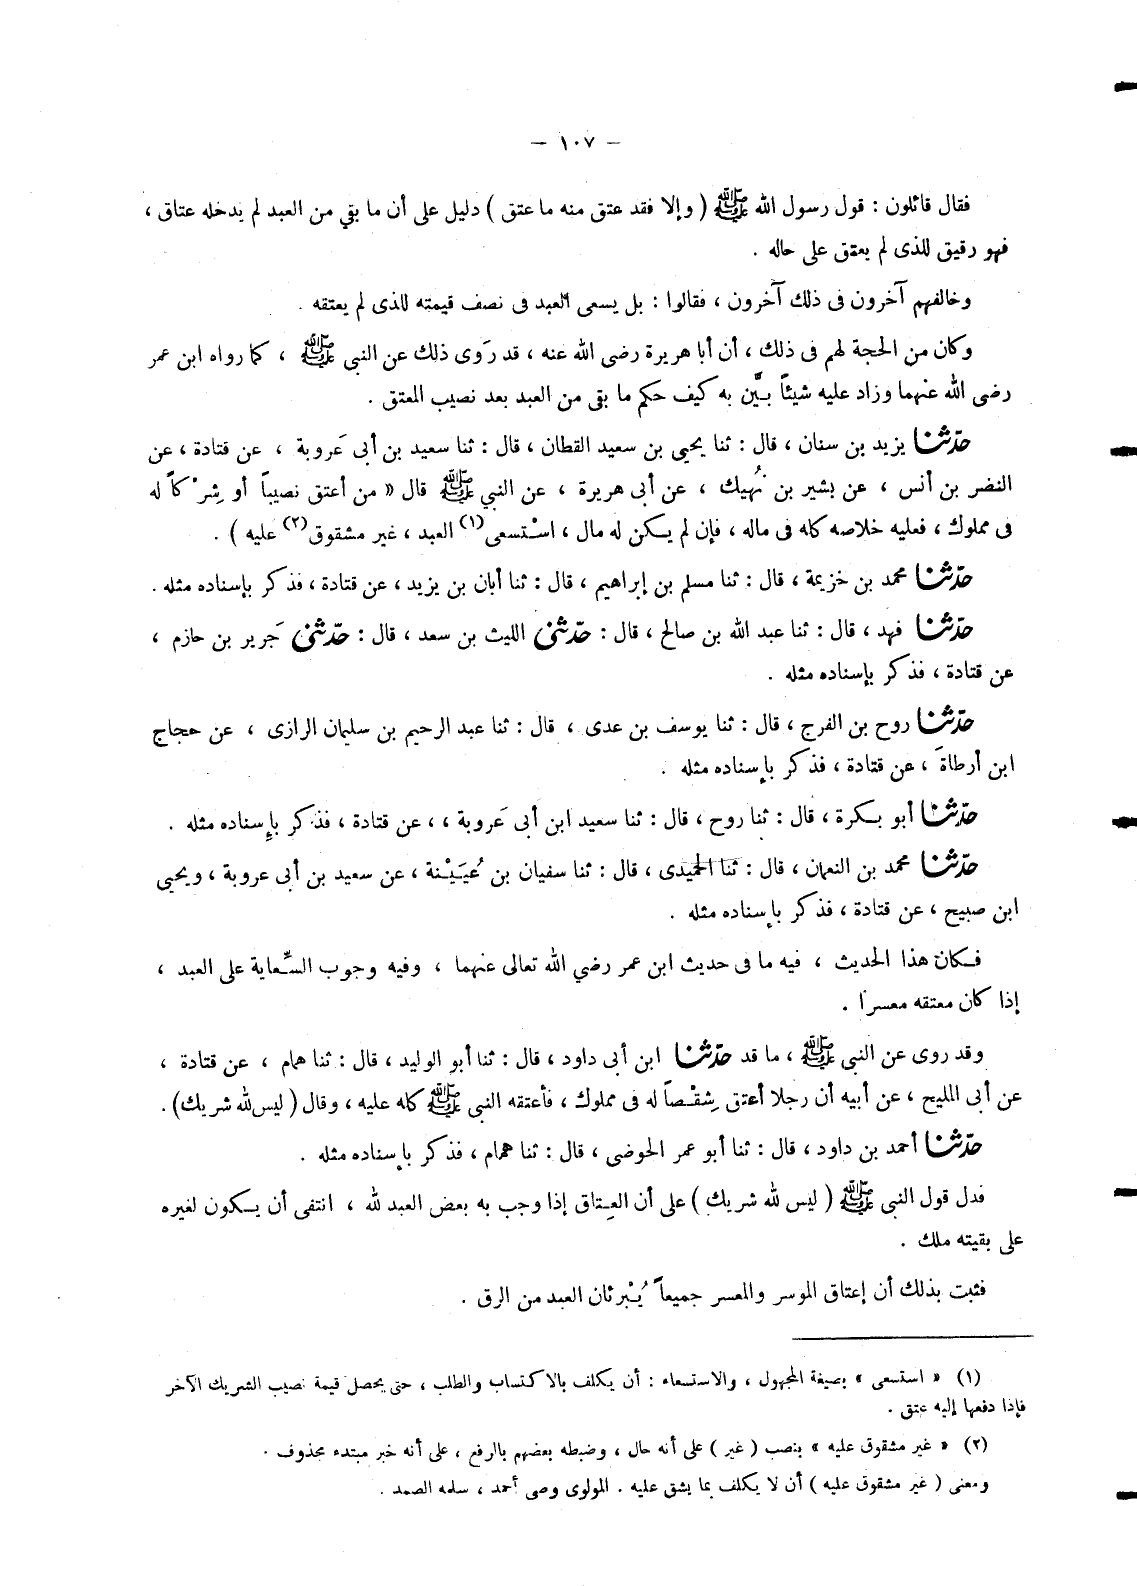 — ١٠٧ —
فقال قائلون : قول رسول الله ﷺ ( وإلا فقد عتق منه ما عتق ) دليل على أن ما بقي من العبد لم يدخله عتاق ،
فهو رقيق للذى لم يعتق على حاله .
وخالفهم آخرون فى ذلك آخرون ، فقالوا : بل يسعى العبد فى نصف قيمته للذى لم يعتقه .
وكان من الحجة لهم فى ذلك ، أن أبا هريرة رضى الله عنه ، قد رَوى ذلك عن النبي ﷺ ، كما رواه ابن عمر
رضى الله عنهما وزاد عليه شيئاً بيَّن به كيف حكم ما بقى من العبد بعد نصيب المعتق .
حدّثنا يزيد بن سنان ، قال : ثنا يحيى بن سعيد القطان ، قال : ثنا سعيد بن أبى عَروبة ، عن قتادة ، عن
النضر بن أنس ، عن بشير بن نَهيك ، عن أبى هريرة ، عن النبي ﷺ قال « من أعتق نصيباً أو شِرْكاً له
فى مملوك ، فعليه خلاصه كله فى ماله ، فإن لم يكن له مال ، اسْتسعى(١) العبد ، غير مشقوق(٢) عليه ) .
حدّثنا محمد بن خزيمة ، قال : ثنا مسلم بن إبراهيم ، قال : ثنا أبان بن يزيد ، عن قتادة ، فذكر بإسناده مثله .
حدّثنا فهد ، قال : ثنا عبد الله بن صالح ، قال : حدّثنى الليث بن سعد ، قال : حدّثنى جَرير بن حازم ،
عن قتادة ، فذكر بإسناده مثله .
حدّثنا روح بن الفرج ، قال : ثنا يوسف بن عدى ، قال : ثنا عبد الرحيم بن سليمان الرازى ، عن حجاج
ابن أرطاةَ ، عن قتادة ، فذكر بإسناده مثله .
حدّثنا أبو بكرة ، قال : ثنا روح ، قال : ثنا سعيد ابن أبى عَروبة ، ، عن قتادة ، فذكر بإسناده مثله .
حدّثنا محمد بن النعمان ، قال : ثنا الحميدى ، قال : ثنا سفيان بن عُيَيْنة ، عن سعيد بن أبى عروبة ، ويحيى
ابن صبيح ، عن قتادة ، فذكر بإسناده مثله .
فكان هذا الحديث ، فيه ما فى حديث ابن عمر رضي الله تعالى عنهما ، وفيه وجوب السِّعاية على العبد ،
إذا كان معتقه معسرا .
وقد روى عن النبى ﷺ ، ما قد حدّثنا ابن أبى داود ، قال : ثنا أبو الوليد ، قال : ثنا همام ، عن قتادة ،
عن أبى المليح ، عن أبيه أن رجلا أعتق شِقْصاً له فى مملوك ، فأعتقه النبى ﷺ كله عليه ، وقال ( ليس لله شريك) .
حدّثنا أحمد بن داود ، قال : ثنا أبو عمر الحوضى ، قال : ثنا همام ، فذكر بإسناده مثله .
فدل قول النبى ﷺ ( ليس لله شريك ) على أن العِتاق إذا وجب به بعض العبد لله ، انتفى أن يكون لغيره
على بقيته ملك .
فثبت بذلك أن إعتاق الموسر والمعسر جميعاً يُبْرئان العبد من الرق .
(١) « استسعى » بصيغة المجهول ، والاستسعاء : أن يكلف بالاكتساب والطلب ، حتى يحصل قيمة نصيب الشريك الآخر
فإذا دفعها إليه عتق .
(٢) « غير مشقوق عليه » بنصب ( غير ) على أنه حال ، وضبطه بعضهم بالرفع ، على أنه خبر مبتدء محذوف .
ومعنى ( غير مشقوق عليه ) أن لا يكلف بما يشق عليه . المولوى وصى أحمد ، سلمه الصمد .